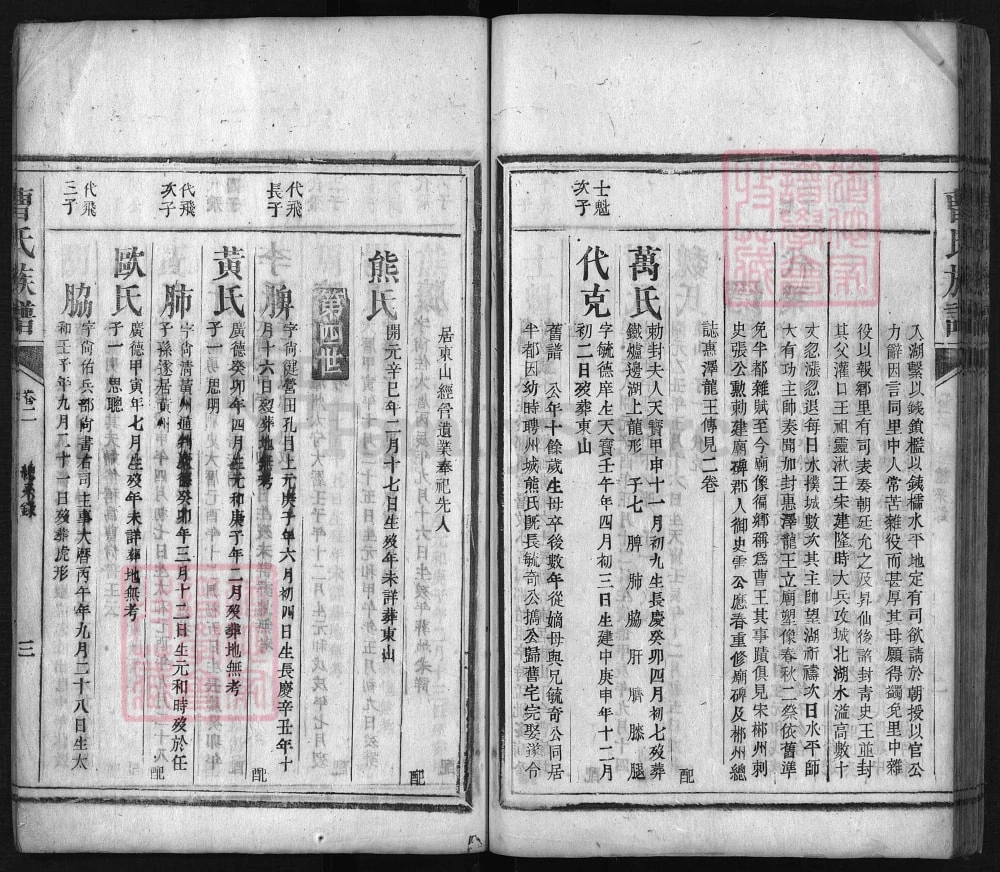 曹氏族譜
入湖繫以鉄鎖檻以鉄檽水平地定有司欲請於朝授以官公
力辭因言同里中人常苦雜役而甚厚其母願得蠲免里中雜
役以報鄉里有司表奏朝廷允之及昇仙後誥封青史王並封
其父灌口王祖靈湫王宋建隆時大兵攻城北湖水溢高數十
丈忽漲忽退每日水撲城數次其主帥望湖祈禱次日水平師
大有功主帥奏聞加封惠澤龍王立廟塑像春秋二祭依舊準
免半都雜賦至今廟像徧鄉稱爲曹王其事蹟俱見宋郴州刺
史張公勲勅建廟碑郡人御史雷公應春重修廟碑及郴州總
誌惠澤龍王傳見二卷
配
萬氏
勅封夫人天寶甲申十一月初九生長慶癸卯四月初七歿葬
鐵爐邊湖上龍形 子七 脾 肺 脇 肝 臍 膝 腿
士魁
次子
代克
字毓德庠生天寶壬午年四月初三日生建中庚申年十二月
初二日歿葬東山
舊譜 公年十餘歲生母卒後數年從嫡母與兄毓奇公同居
半都因幼時聘州城熊氏旣長毓奇公擕公歸舊宅完娶遂令
居東山經管遺業奉祀先人
配
熊氏
開元辛巳年二月十七日生歿年未詳葬東山
第四世
代飛
長子
脾
字尙健營田孔目上元庚子年六月初四日生長慶辛丑年十
月十六日歿葬地無考
配
黃氏
廣德癸卯年四月生元和庚子年二月歿葬地無考
子一 思明
代飛
次子
肺
字尙淸黃州通判廣德癸卯年三月十二日生元和時歿於任
子孫遂居黃州
配
歐氏
廣德甲寅年七月生歿年未詳葬地無考
子一 思聰
代飛
三子
脇
字尙佑兵部尙書右司主事大曆丙午年九月二十八日生太
和壬子年九月二十一日歿葬虎形
曹氏族譜
卷二
總系錄
三